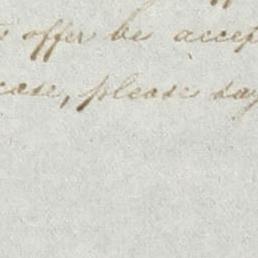 offer be accep
case, please say